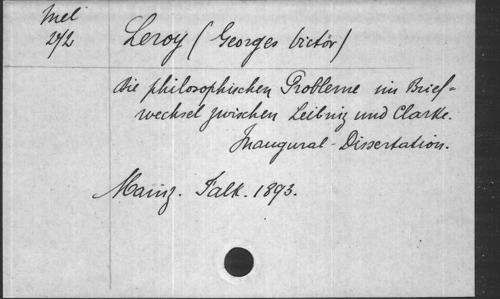 Mel
242
Leroy (Georges Victor)
Die philosophischen Probleme im Brief=
wechsel zwischen Leibniz und Clarke.
Inaugural-Dissertation.
Mainz. Falk. 1893.